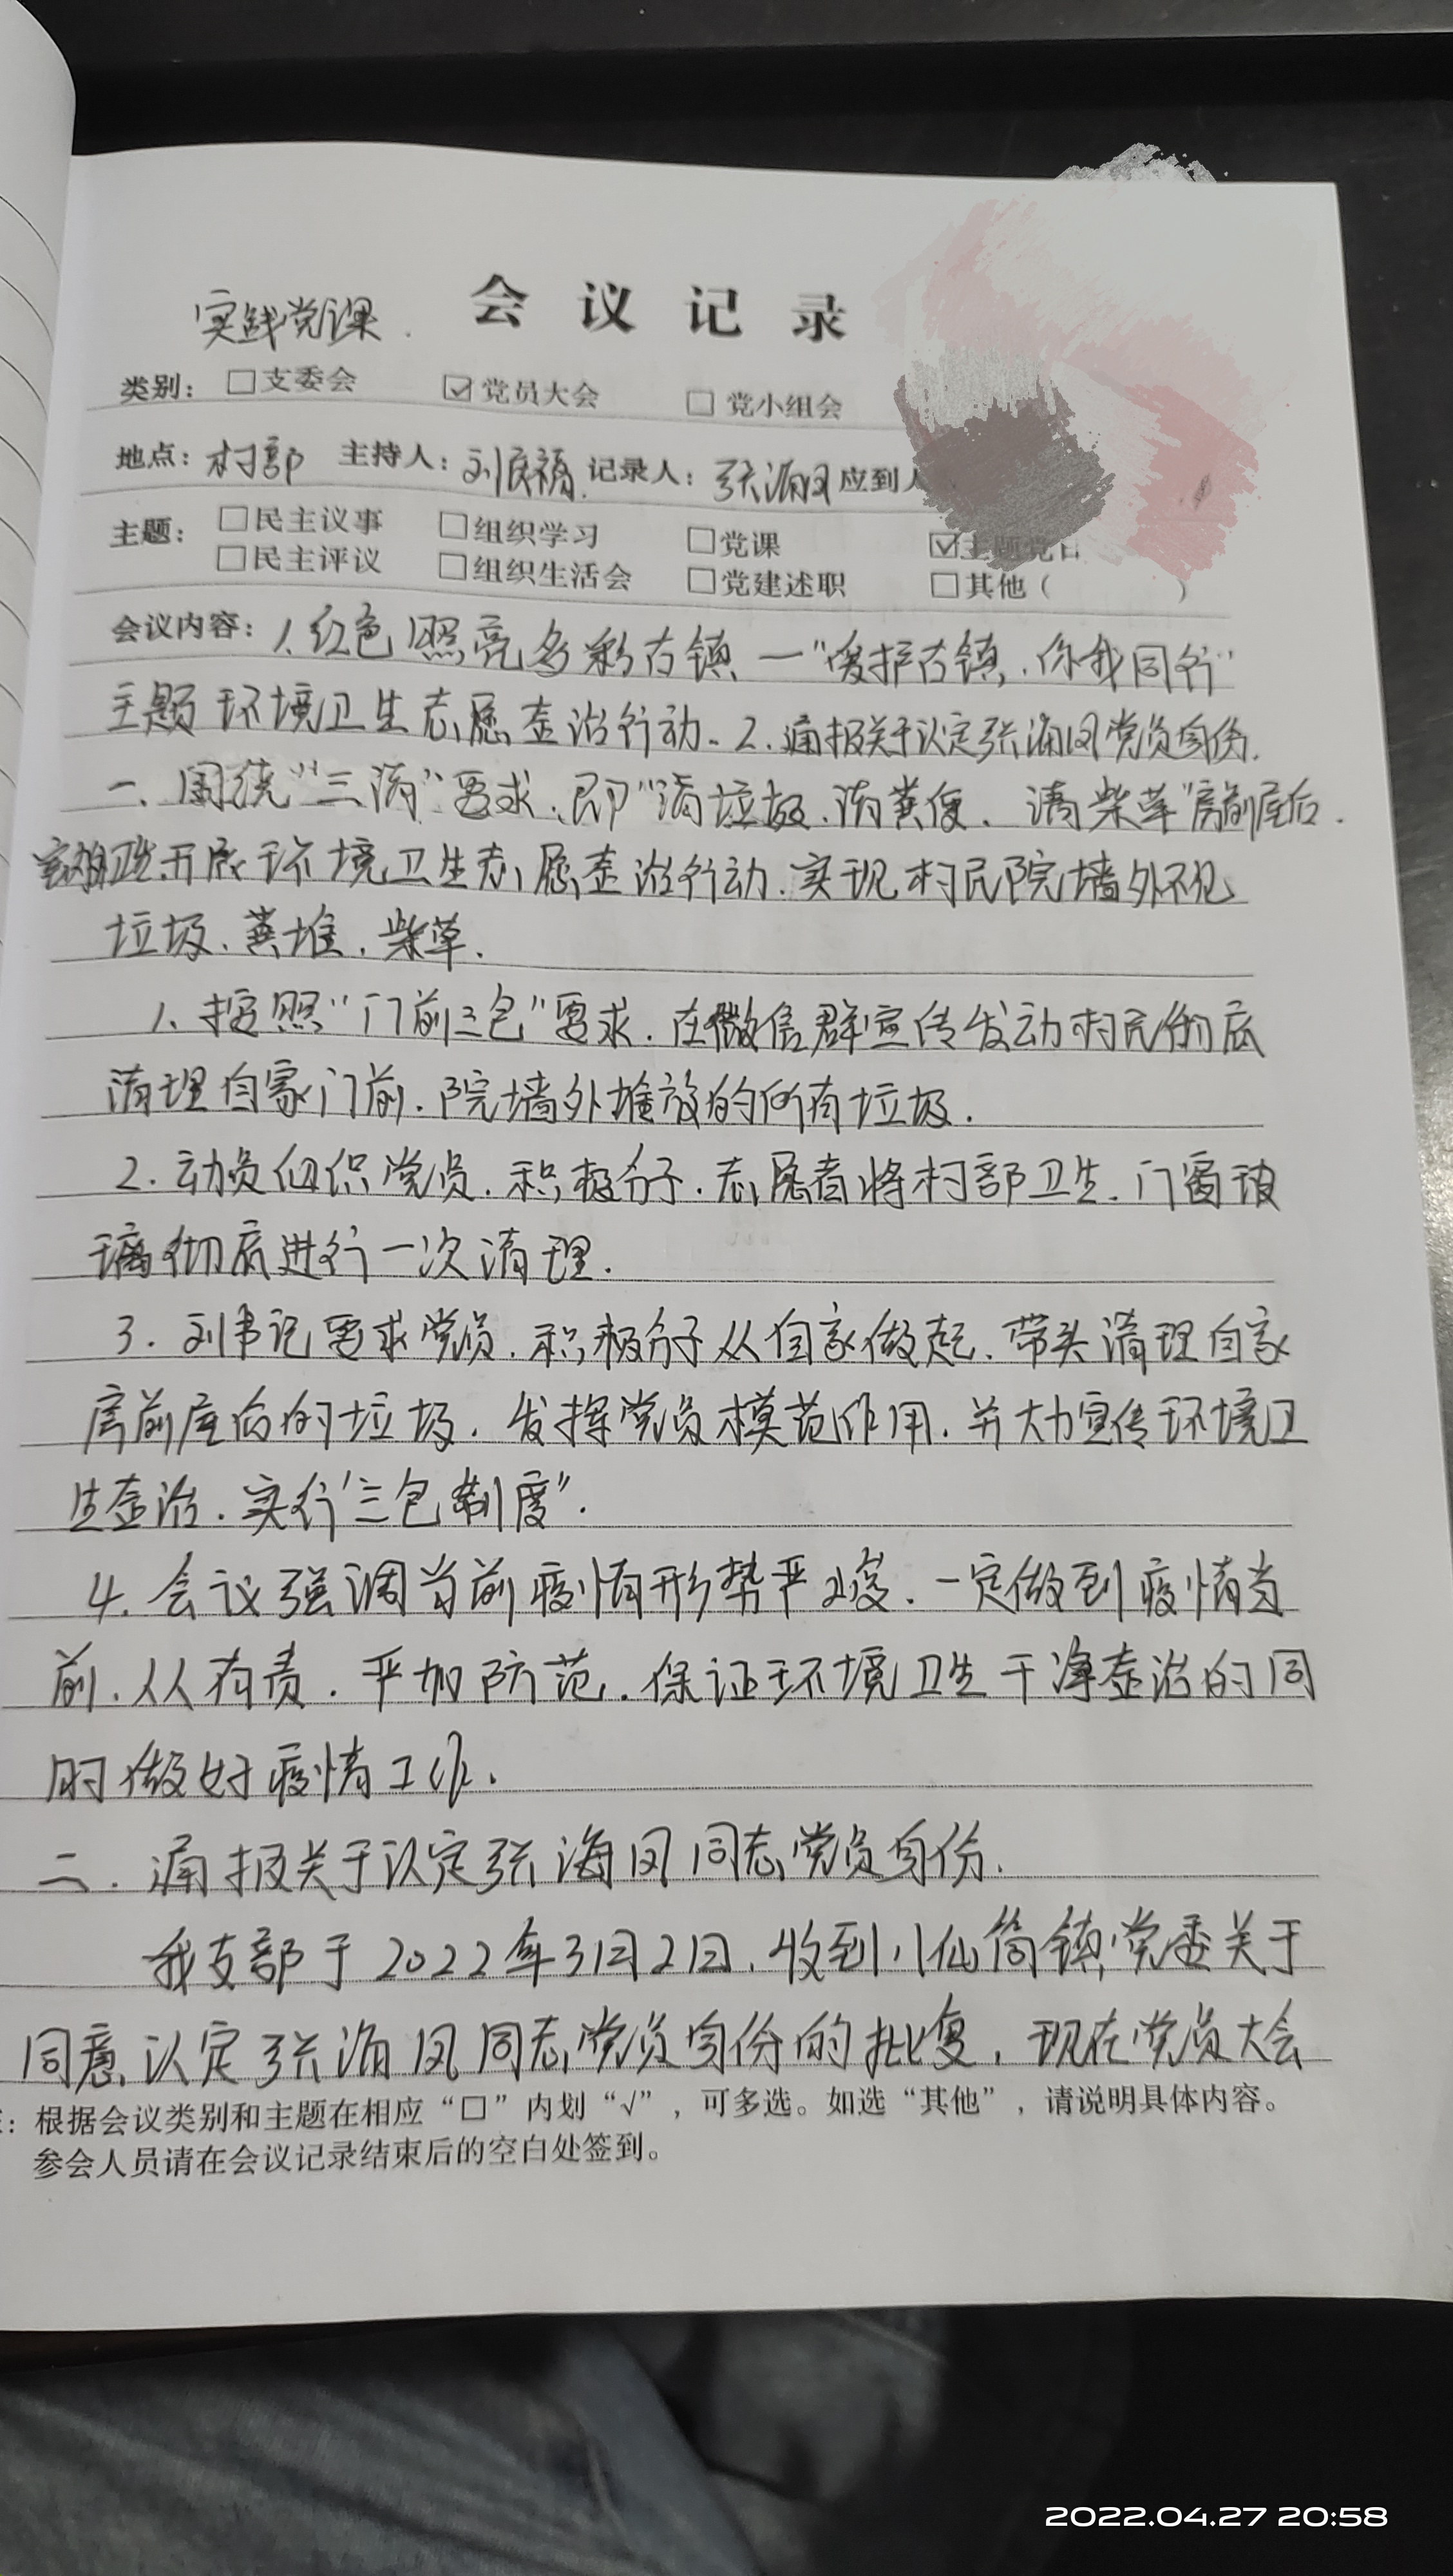 实践党课.
会 议 记 录
类别: □支委会 ☑党员大会 □党小组会
地点: 村部 主持人: 刘庆福. 记录人: 张海凤 应到人
主题: □民主议事 □组织学习 □党课 ☑主题党日
□民主评议 □组织生活会 □党建述职 □其他( )
会议内容: 1.红色照亮多彩古镇一"爱护古镇.你我同行"
主题环境卫生志愿整治行动. 2.通报关于认定张海凤党员身份.
一、围绕"三清"要求.即"清垃圾.清粪便、清柴草"房前屋后.
开展环境卫生志愿整治行动.实现村民院墙外不见
垃圾.粪堆.柴草.
1.按照"门前三包"要求.在微信群宣传发动村民彻底
清理自家门前.院墙外堆放的所有垃圾.
2.动员组织党员.积极分子.志愿者将村部卫生.门窗玻
璃彻底进行一次清理.
3.刘书记要求党员.积极分子从自家做起.带头清理自家
房前屋后的垃圾.发挥党员模范作用.并大力宣传环境卫
生整治.实行"三包制度".
4.会议强调当前疫情形势严峻.一定做到疫情当
前.人人有责.严加防范.保证环境卫生干净整治的同
时做好疫情工作.
二.通报关于认定张海凤同志党员身份.
我支部于2022年3月21日.收到八仙筒镇党委关于
同意认定张海凤同志党员身份的批复,现在党员大会
: 根据会议类别和主题在相应“□”内划“√”,可多选。如选“其他”,请说明具体内容。
参会人员请在会议记录结束后的空白处签到。
2022.04.27 20:58